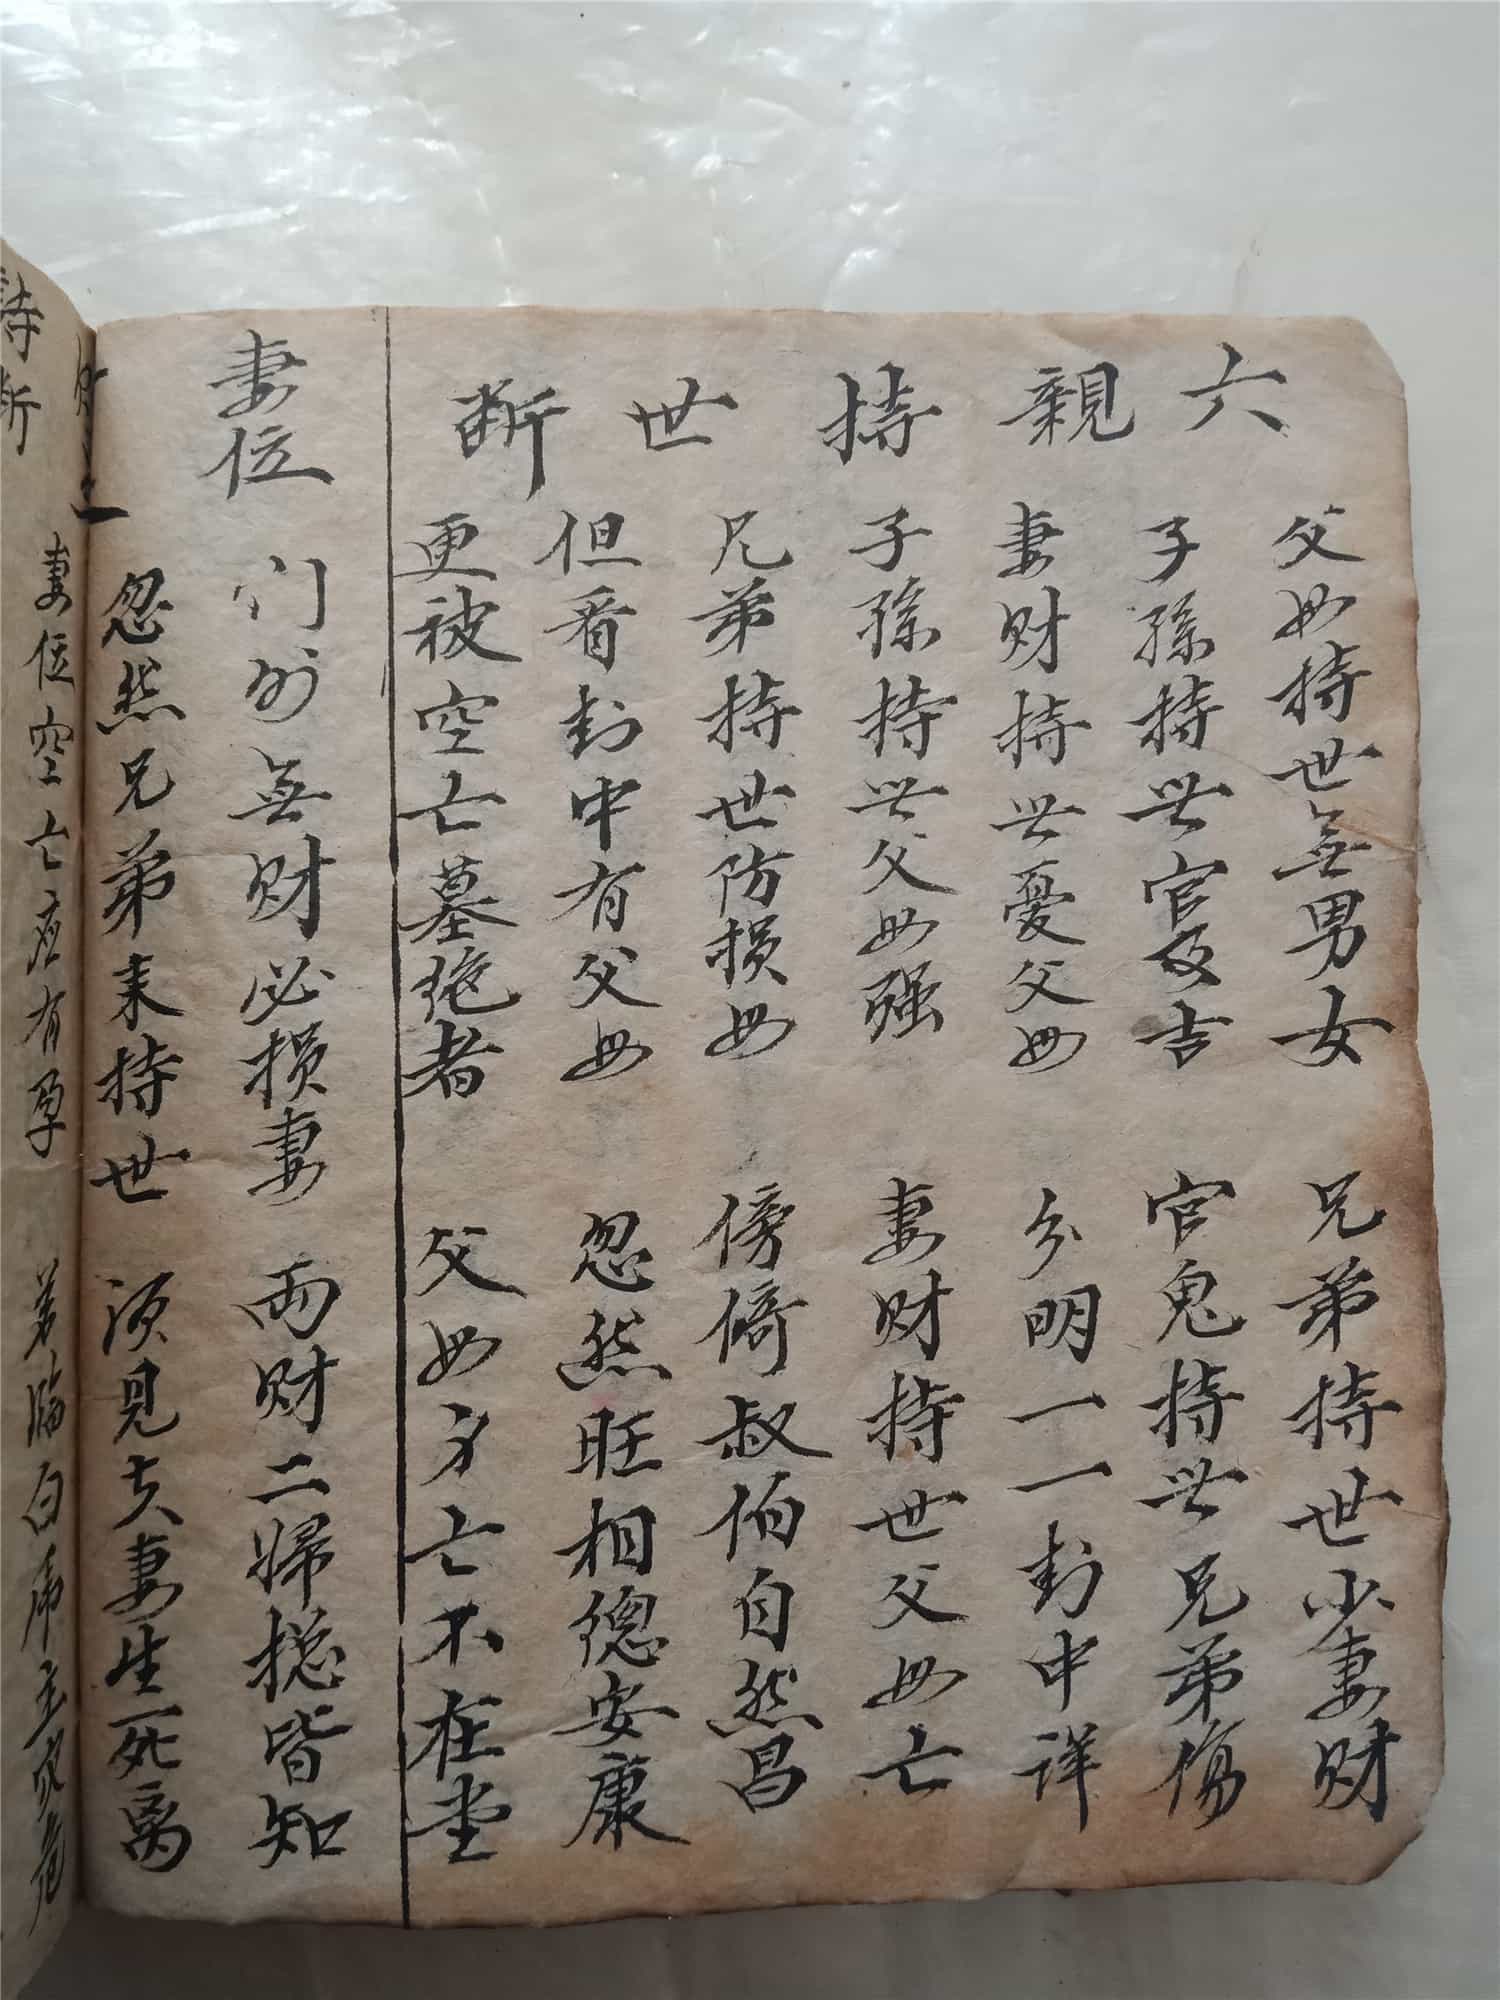 六親持世断
父母持世無男女 兄弟持世少妻财
子孫持世官及吉 官鬼持世兄弟傷
妻财持世憂父母 分明一一卦中详
子孫持世父母强 妻财持世父母亡
兄弟持世防损母 傍倚叔伯自然昌
但看卦中有父母 忽然旺相總安康
更被空亡墓绝者 父母身亡不在堂
妻位
门外無财必损妻 两财二归揔皆知
忽然兄弟来持世 须見夫妻生死离
妻位空亡应有孕 弟临白虎主